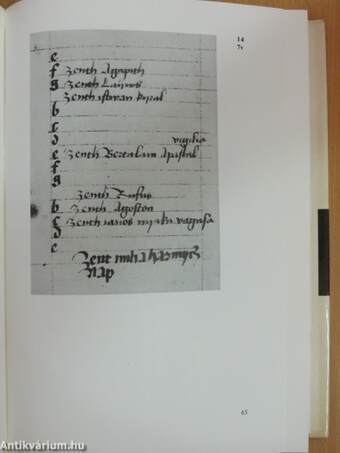 14
7v
e
f Zenth Agapith
g Zenth Laiuos
Zenth istwan kiral
b
c
d vigilia
e Zenth Bertalan Apastal
f
g
Zenth Rufus
b Zenth Agoston
c Zenth ianos nyaka vagasa
d
e
Zent
Nap
65
Antikvárium.hu